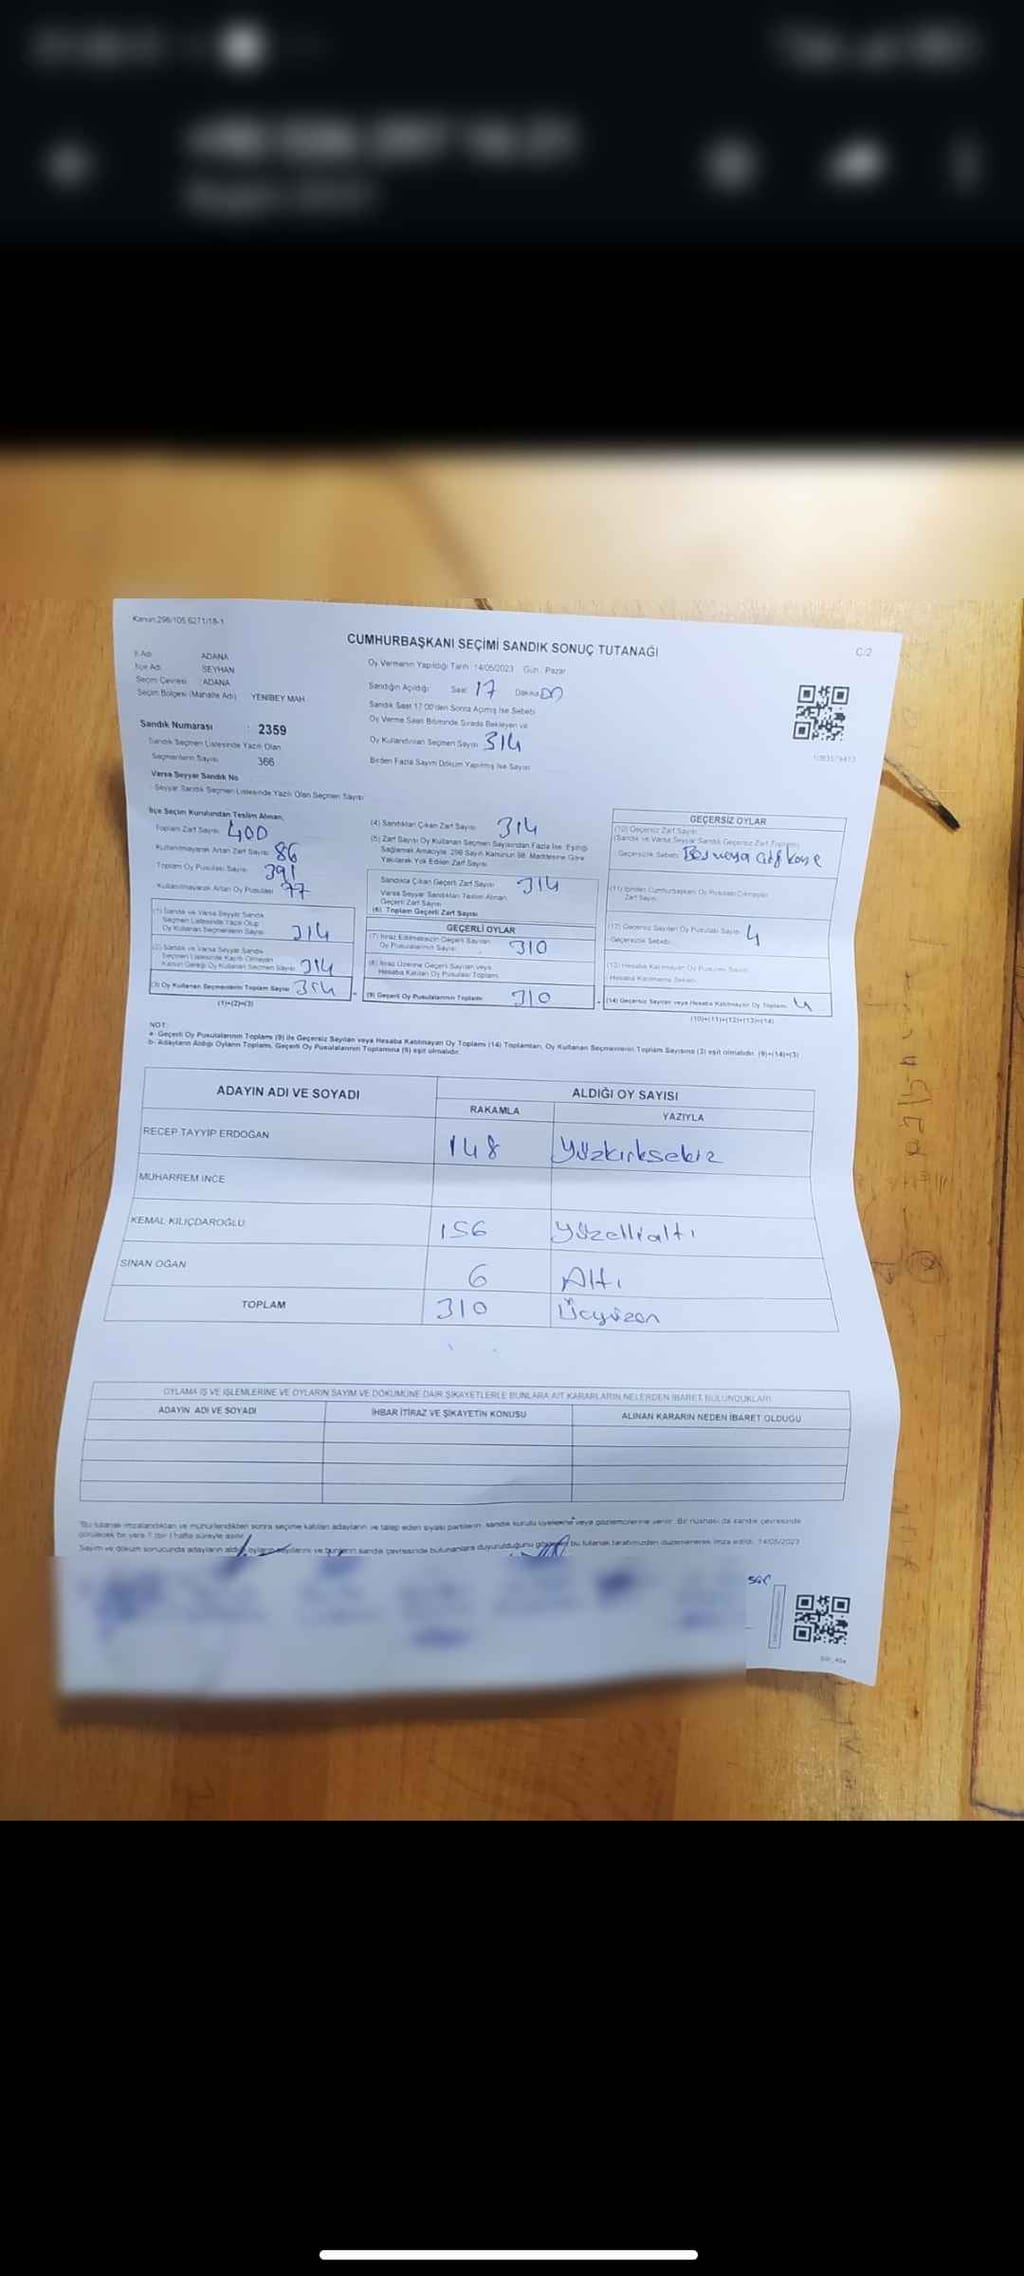 Kanun:298/105 6271/18-1
CUMHURBAŞKANI SEÇİMİ SANDIK SONUÇ TUTANAĞI
C/2
İl Adı ADANA
İlçe Adı SEYHAN
Seçim Çevresi ADANA
Seçim Bölgesi (Mahalle Adı) YENİBEY MAH.
Oy Vermenin Yapıldığı Tarih : 14/05/2023 Gün : Pazar
Sandığın Açıldığı Saat 17 Dakika 00
Sandık Saat 17.00'den Sonra Açımış İse Sebebi
Oy Verme Saati Bitiminde Sırada Bekleyen ve
Oy Kullandırılan Seçmen Sayısı 314
Birden Fazla Sayım Döküm Yapılmış İse Sayısı
Sandık Numarası : 2359
Sandık Seçmen Listesinde Yazılı Olan
Seçmenlerin Sayısı 366
Varsa Seyyar Sandık No
Seyyar Sandık Seçmen Listesinde Yazılı Olan Seçmen Sayısı
İlçe Seçim Kurulundan Teslim Alınan,
Toplam Zarf Sayısı 400
Kullanılmayarak Artan Zarf Sayısı 86
Toplam Oy Pusulası Sayısı 391
Kullanılmayarak Artan Oy Pusulası 77
(1) Sandık ve Varsa Seyyar Sandık
Seçmen Listesinde Yazılı Olup
Oy Kullanan Seçmenlerin Sayısı 314
(2) Sandık ve Varsa Seyyar Sandık
Seçmen Listesinde Kayıtlı Olmayan
Kanun Gereği Oy Kullanan Seçmen Sayısı 314
(3) Oy Kullanan Seçmenlerin Toplam Sayısı 314
(1)+(2)=(3)
(4) Sandıktan Çıkan Zarf Sayısı 314
(5) Zarf Sayısı Oy Kullanan Seçmen Sayısından Fazla İse, Eşitliği
Sağlamak Amacıyla, 298 Sayılı Kanunun 98. Maddesine Göre
Yakılarak Yok Edilen Zarf Sayısı
Sandıkta Çıkan Geçerli Zarf Sayısı 314
Varsa Seyyar Sandıktan Teslim Alınan
Geçerli Zarf Sayısı
(6) Toplam Geçerli Zarf Sayısı
GEÇERLİ OYLAR
(7) İtiraz Edilmeksizin Geçerli Sayılan
Oy Pusulalarının Sayısı 310
(8) İtiraz Üzerine Geçerli Sayılan veya
Hesaba Katılan Oy Pusulası Toplamı
(9) Geçerli Oy Pusulalarının Toplamı 310
GEÇERSİZ OYLAR
(10) Geçersiz Zarf Sayısı
(Sandık ve Varsa Seyyar Sandık Geçersiz Zarf Toplamı)
Geçersizlik Sebebi
(12) Geçersiz Sayılan Oy Pusulası Sayısı 4
Geçersizlik Sebebi
(13) Hesaba Katılmayan Oy Pusulası Sayısı
Hesaba Katılmama Sebebi
(14) Geçersiz Sayılan veya Hesaba Katılmayan Oy Toplamı 4
(10)+(11)+(12)+(13)=(14)
NOT:
a- Geçerli Oy Pusulalarının Toplamı (9) ile Geçersiz Sayılan veya Hesaba Katılmayan Oy Toplamı (14) Toplamları, Oy Kullanan Seçmenlerin Toplam Sayısına (3) eşit olmalıdır. (9)+(14)=(3)
b- Adayların Aldığı Oyların Toplamı, Geçerli Oy Pusulalarının Toplamına (9) eşit olmalıdır.
ADAYIN ADI VE SOYADI ALDIĞI OY SAYISI
RAKAMLA YAZIYLA
RECEP TAYYİP ERDOĞAN 148 Yüzkırksekiz
MUHARREM İNCE
KEMAL KILIÇDAROĞLU 156 Yüzellialtı
SİNAN OĞAN 6 Altı
TOPLAM 310 Üçyüzon
OYLAMA İŞ VE İŞLEMLERİNE VE OYLARIN SAYIM VE DÖKÜMÜNE DAİR ŞİKAYETLERLE BUNLARA AİT KARARLARIN NELERDEN İBARET BULUNDUKLARI
ADAYIN ADI VE SOYADI İHBAR İTİRAZ VE ŞİKAYETİN KONUSU ALINAN KARARIN NEDEN İBARET OLDUĞU